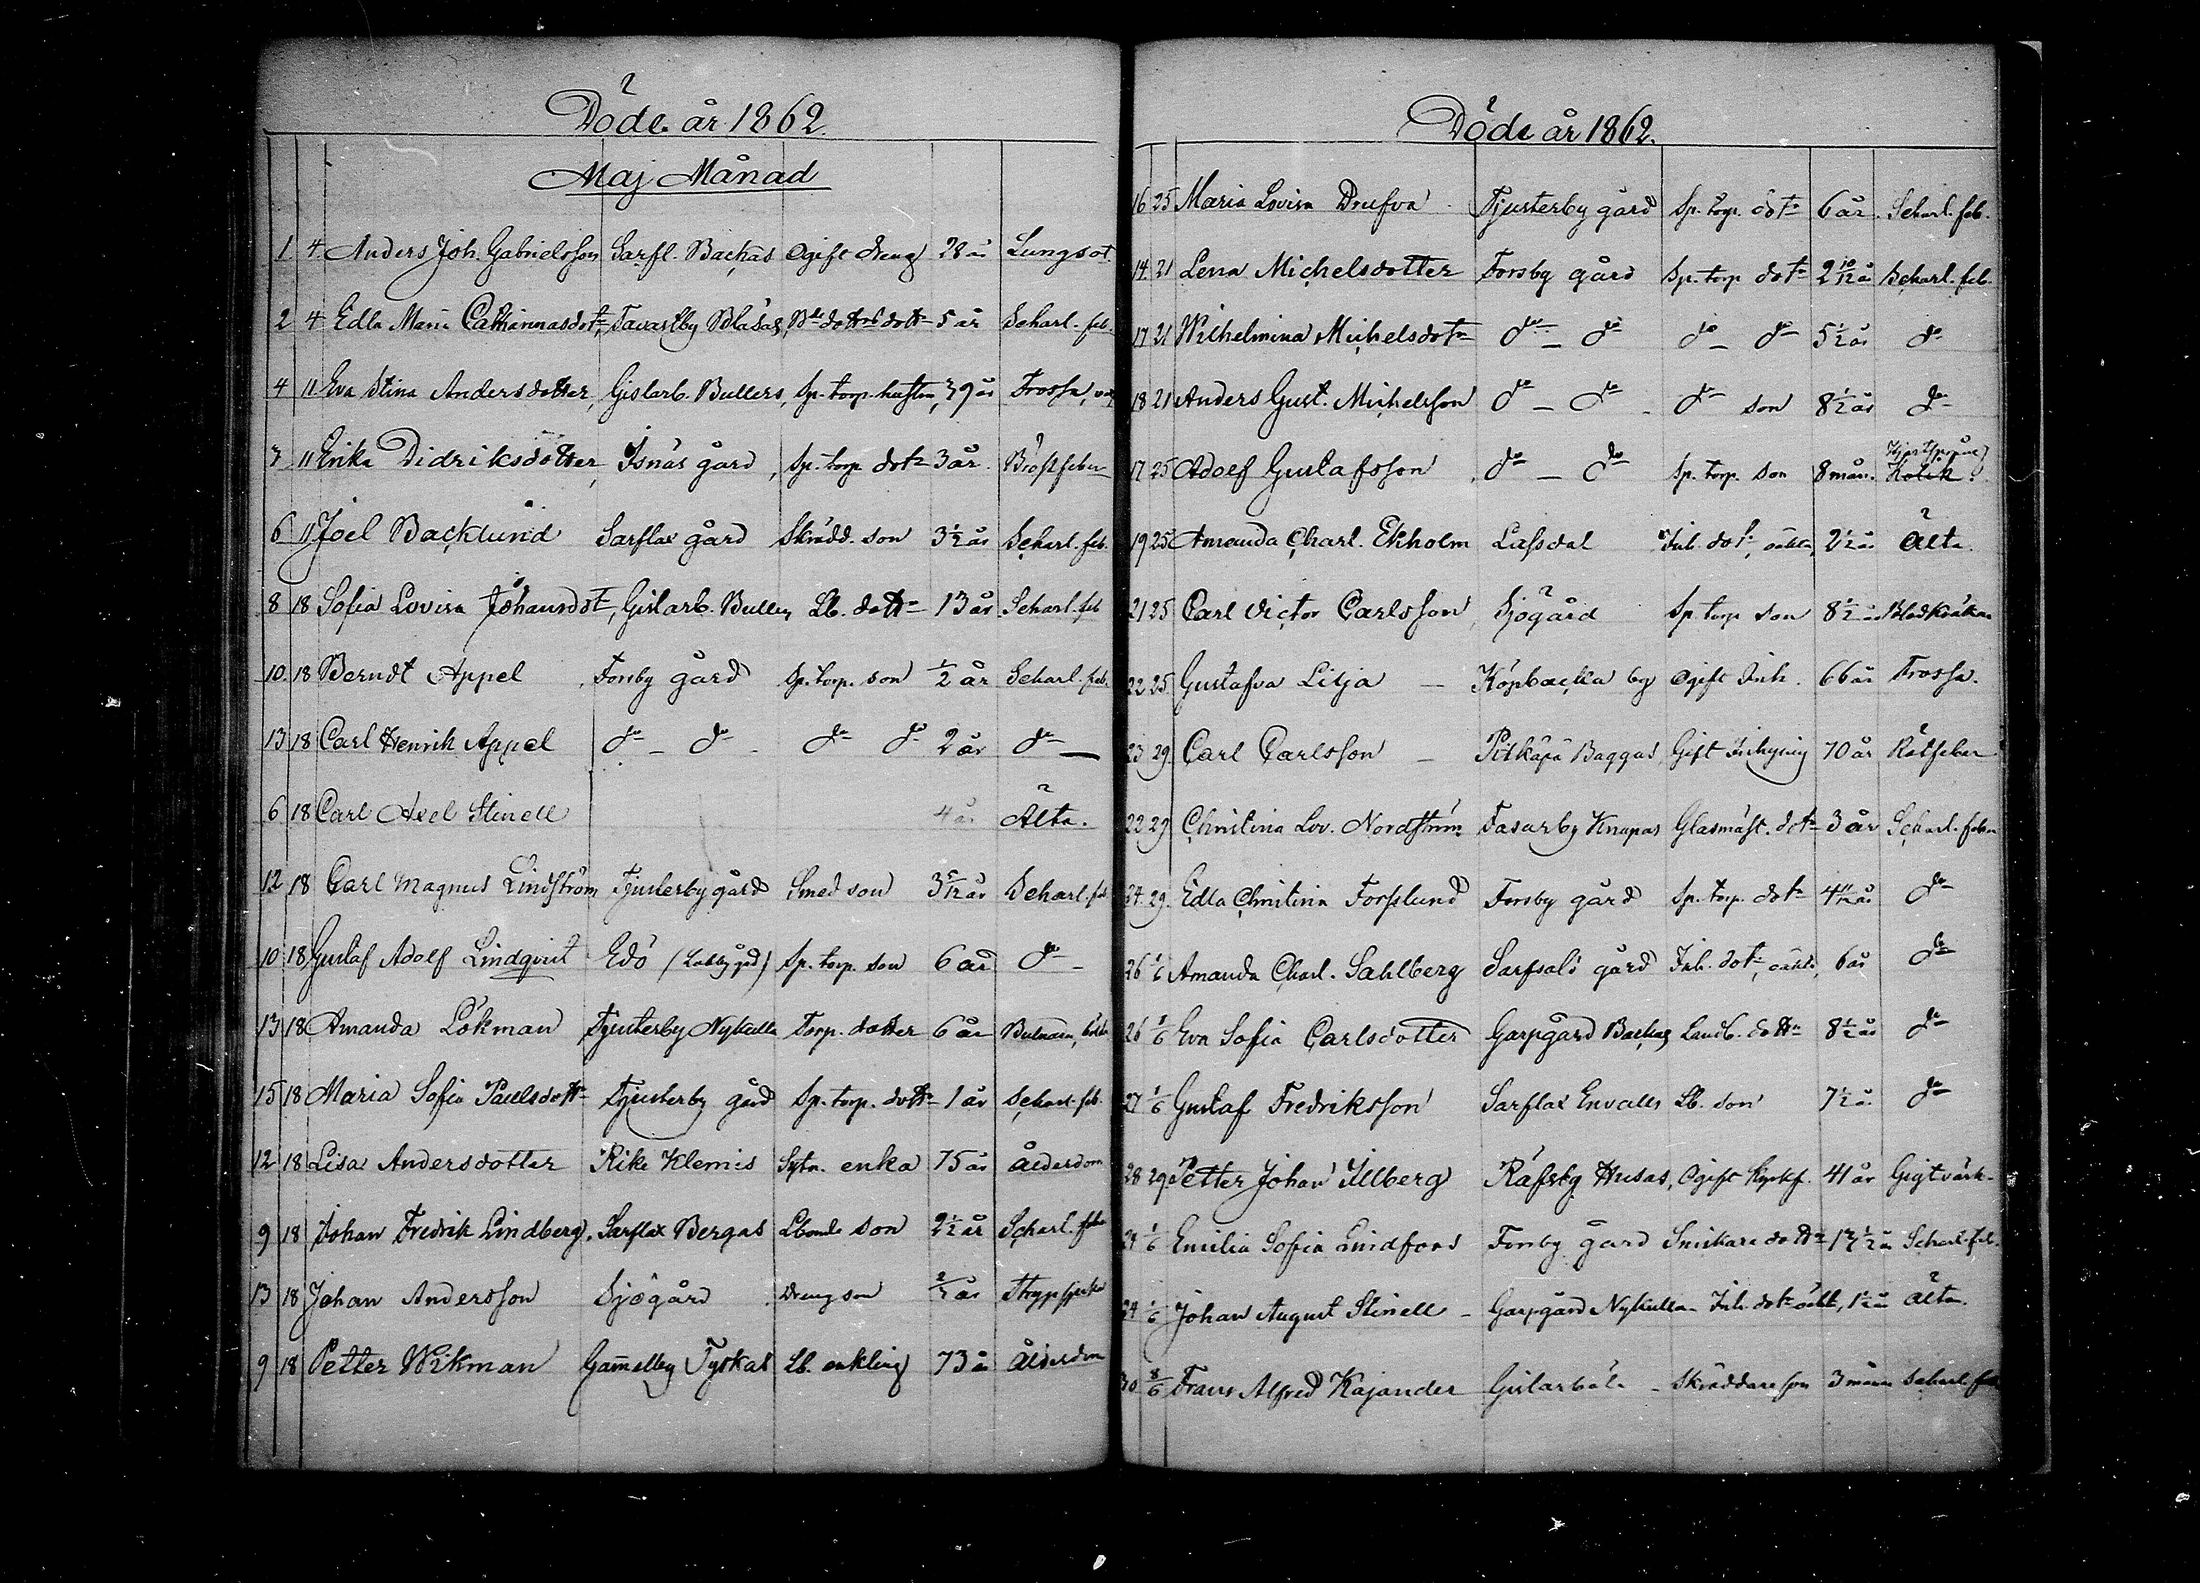 Döde år 1862.
Maj Månad
1 4 Anders Joh. Gabrielsson Sarfl. Backas Ogift dreng 28 år Lungsot.
2 4 Edla Maria Catharinasdotr, Tavastby Blåsas, Bde dottrs dottr 5 år Scharl. feb.
4 11 Eva Stina Andersdotter, Gislarb. Bullers, Sp. torp. hustru, 39 år Frossa,
3 11 Erika Didriksdotter, Isnäs gård, Sp. torp dotr 3 år. Bröstfeber
6 11 Joel Backlund Sarflax gård Skrädd. son 3 1/2 år Scharl. feb.
8 18 Sofia Lovisa Johansdotr, Gislarb. Bullers, Lb. dottr 13 år Scharl. feb
10 18 Berndt Appel Forsby gård Sp. torp. son 1/2 år Scharl. feb.
13 18 Carl Henrik Appel do - do do do 2 år do
6 18 Carl Axel Stinell 4 år Älta.
12 18 Carl Magnus Lindström Tjusterby gård Smed son 3 5/12 år Scharl. feb
10 18 Gustaf Adolf Lindqvist Edö (Labby gd) Sp. torp. son 6 år do
13 18 Amanda Lökman Tjusterby Nykulla Torp. dotter 6 år
15 18 Maria Sofia Paulsdottr Tjusterby gård Sp. torp. dottr 1 år Scharl. feb.
12 18 Lisa Andersdotter Rike Klemis Sytn. enka 75 år Ålderdom
9 18 Johan Fredrik Lindberg, Sarflax Bergas Lbonde son 2 1/2 år Scharl. feber
13 18 Johan Andersson Sjögård Dreng son år
9 18 Petter Wikman Gamelby Tyskas Lb. enkling 73 år Ålderdom
Döde år 1862.
16 25 Maria Lovisa Drufva Tjusterby gård Sp. torp. dotr 6 år. Scharl. feb.
14 21 Lena Michelsdotter Forsby gård Sp. torp dotr 2 10/12 år Scharl. feb.
17 21 Wilhelmina Michelsdotr do - do do - do 5 1/2 år do
18 21 Anders Gust. Michelsson do - do do son 8 1/2 år do
17 25 Adolf Gustafsson do - do Sp. torp. son 8 mån. Kolik
19 25 Amanda Charl. Ekholm Lassdal Inh. dotr, oäkta, 2 1/2 år Älta.
21 25 Carl Victor Carlsson, Sjögård Sp. torp son 8 1/2 år
22 25 Gustafva Lilja - Köpbacka by Ogift Inh. 66 år Frossa.
23 29 Carl Carlsson - Pitkäpä Baggas Gift Inhysing 70 år Rötfeber
22 29 Christina Lov. Nordström Tasarby Knapas Glasmäst. dotr 3 år Scharl. feber
24 29 Edla Christina Forsslund Forsby gård Sp. torp. dotr 4 11/12 år do
26 1/6 Amanda Charl. Sahlberg Sarfsalö gård Inh. dotr, oäkta, 6 år do
26 1/6 Eva Sofia Carlsdotter Garpgård Backas Landb. dottr 8 1/2 år do
27 1/6 Gustaf Fredriksson Sarflax Envalls Lb. son 7 1/2 år do
28 29 Petter Johan Illberg Räfsby Husas, Ogift 41 år Gigtvärk.
24 1/6 Emilia Sofia Lindfors Forsby gård Snickare dottr år Scharl. feb.
24 1/6 Johan August Stinell - Garpgård Nykulla Inh. dotr oäkt, 1 1/2 år älta.
30 8/6 Frans Alfred Kajander Gislarböle - Skräddare son 3 mån Scharl. feb